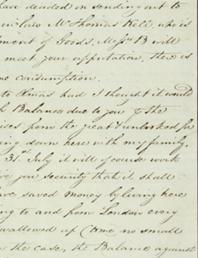 have decided on sending out to
Mr Thomas Kelt who is
ment of Goods, Messrs B will
meet your expectation, there is
no consumption.
to Xmas had I thought it would
h Balance due to you & the
ised from the great & unlooked for
ing down here with my family.
31st July it will of course work
ive you security that it shall
ave saved money by living here
ng to and from London every
wallowed up (to me no small
n the case, the Balance against